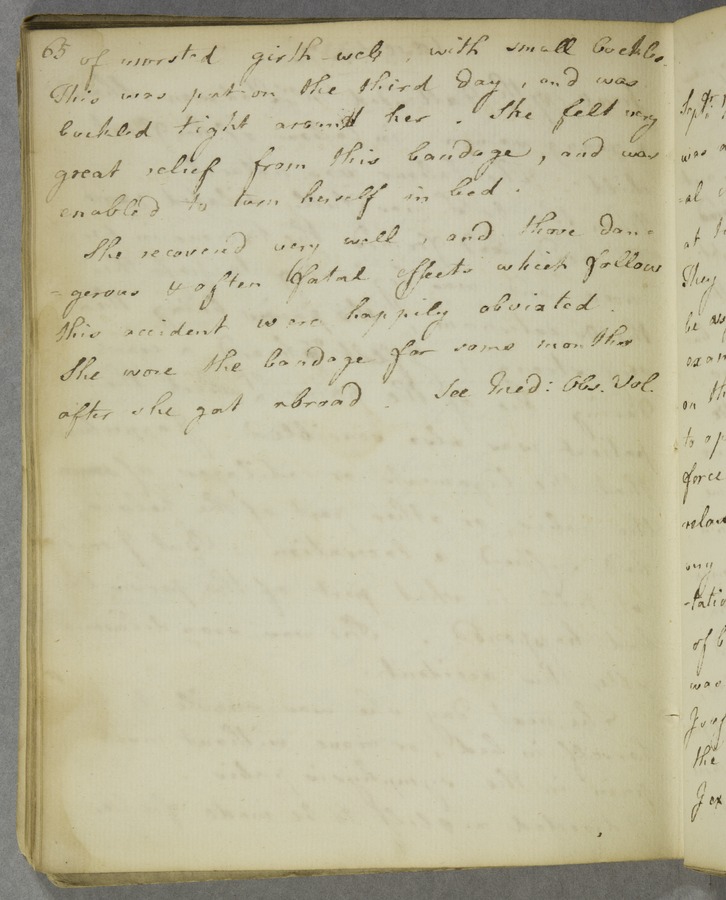 65 of worsted girth-web, with small buckles.
This was put on the third day, and was
buckled tight around her. She felt very
great relief from this bandage, and was
enabled to turn herself in bed.
She recovered very well, and those dan=
=gerous & often fatal effects which follow
this accident were happily obviated.
She wore the bandage for some months
after she got abroad. See Med: Obs. Vol.
Sept.
was
=al
at
They
be
exam
on th
to op
force
relax
my
-tatio
of
was
the